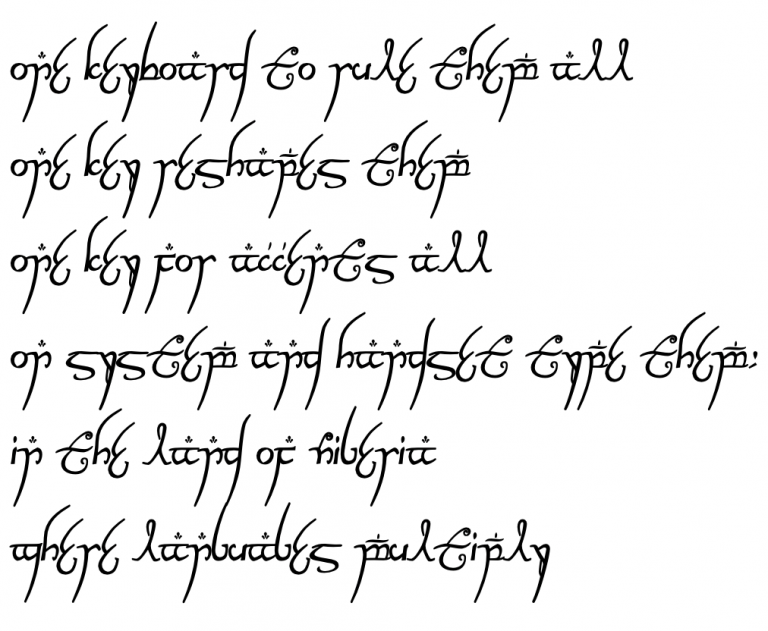 one keyboard to rule them all
one key reshapes them
one key for accents all
on system and handset type them;
in the land of Nigeria
where languages multiply